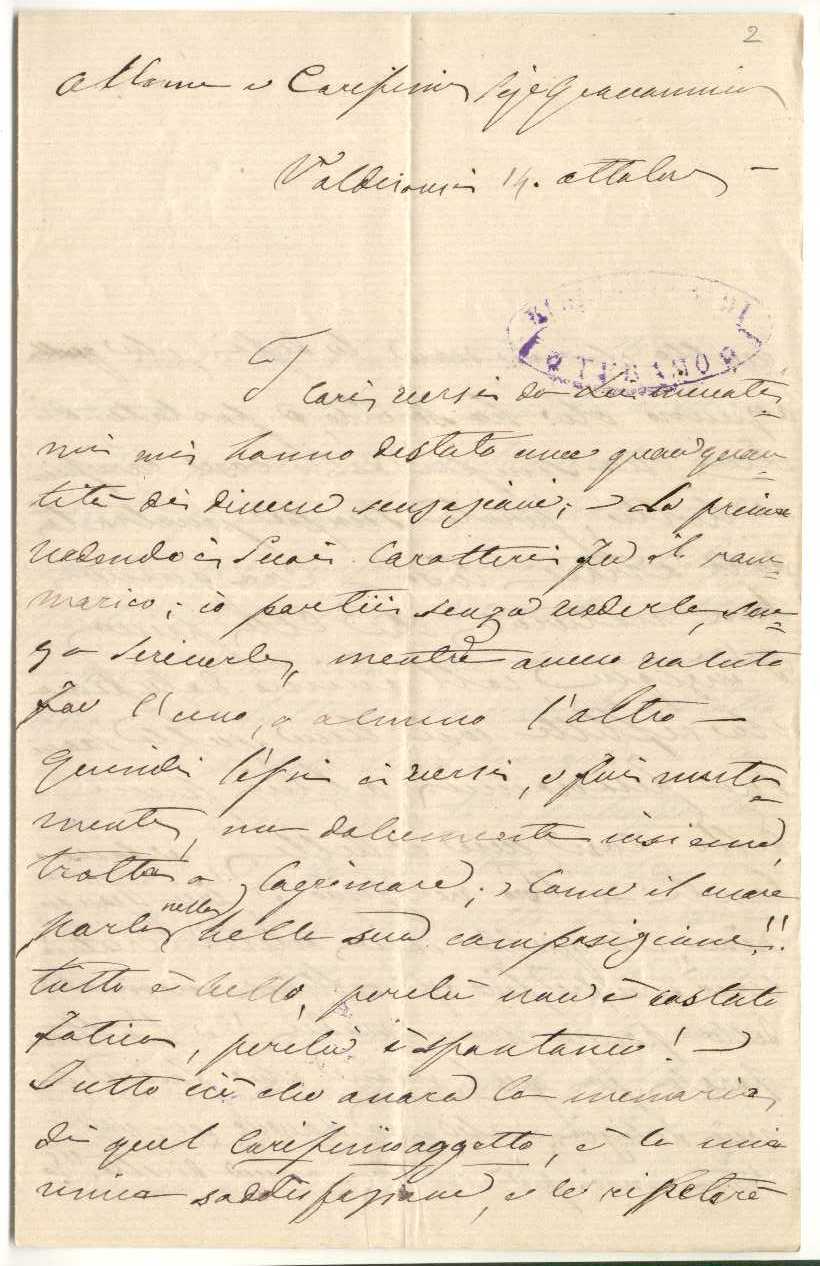 2
Ottimo e Carissimo Sigr Giovannino
Valdisonsi 14. ottobre —
BI DI
TERAMO
I cari versi da Lei inviati=
mi mi hanno destato una gran quan=
tità di diverse sensazioni; — La prima
vedendo i suoi Caratteri fu il ram=
marico; io partii senza vederla, sen=
za scriverle, mentre avevo voluto
far l'uno, o almeno l'altro —
Quindi lessi i versi, e fui mesta=
mente, ma dolcemente insieme,
tratta a lagrimare; Come il cuore
parla nella bella sua composizione!!
tutto è bello, perchè non è costato
fatica, perchè è spontaneo! —
Tutto ciò che onora la memoria,
di quel carissimo oggetto, è la mia
unica soddisfazione, e le ripeterò